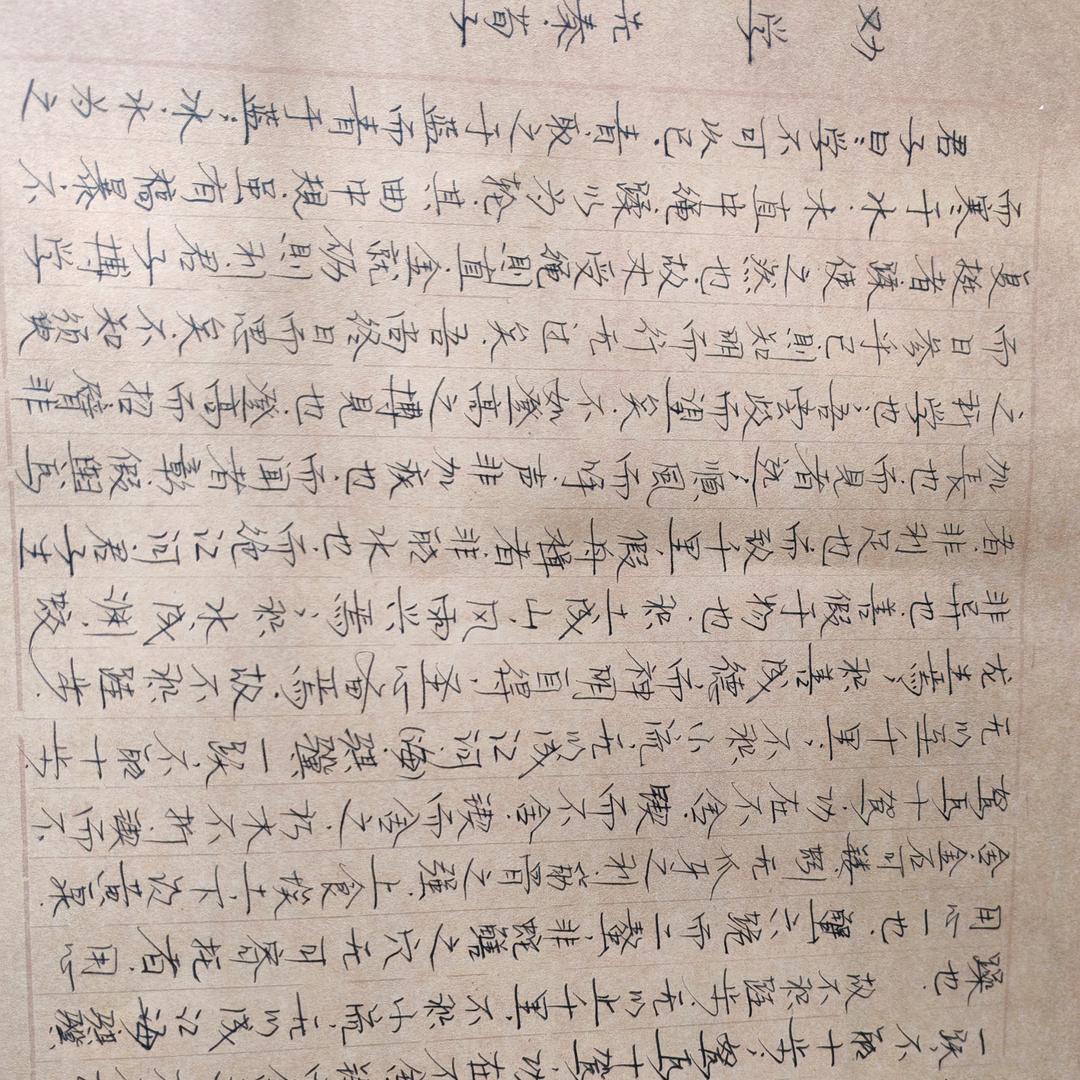 劝学
先秦·荀子
君子曰:学不可以已.青.取之于藍而青于藍;冰.水为之
而寒于水.木直中绳.輮以为轮.其曲中規.虽有槁暴.不
复挺者.輮使之然也.故木受绳則直.金就砺則利.君子博学
而日參乎己.則知明而行无过矣.吾嘗終日而思矣.不如须臾
之所学也;吾尝跂而望矣.不如登高之博見也.登高而招.臂非
加長也.而見者远;順風而呼.声非加疾也.而闻者彰.假輿馬
者.非利足也.而致千里.假舟楫者.非能水也.而绝江河.君子生
非异也.善假于物也.积土成山.风雨兴焉;积水成渊.蛟
龙生焉;积善成德.而神明自得.圣心备焉.故不积跬步.
无以至千里;不积小流.无以成江河(海).骐骥一跃.不能十步.
驽馬十驾.功在不舍.鍥而不舍.鍥而舍之.朽木不折.鍥而不
舍.金石可镂.蚓无爪牙之利.筋骨之强.上食埃土.下饮黄泉.
用心一也.蟹六跪而二螯.非蛇鳝之穴无可寄托者.用心
躁也.
故不积跬步.无以至千里.不积小流.无以成江海.骐骥
一跃.不能十步;驽馬十驾.功在不舍